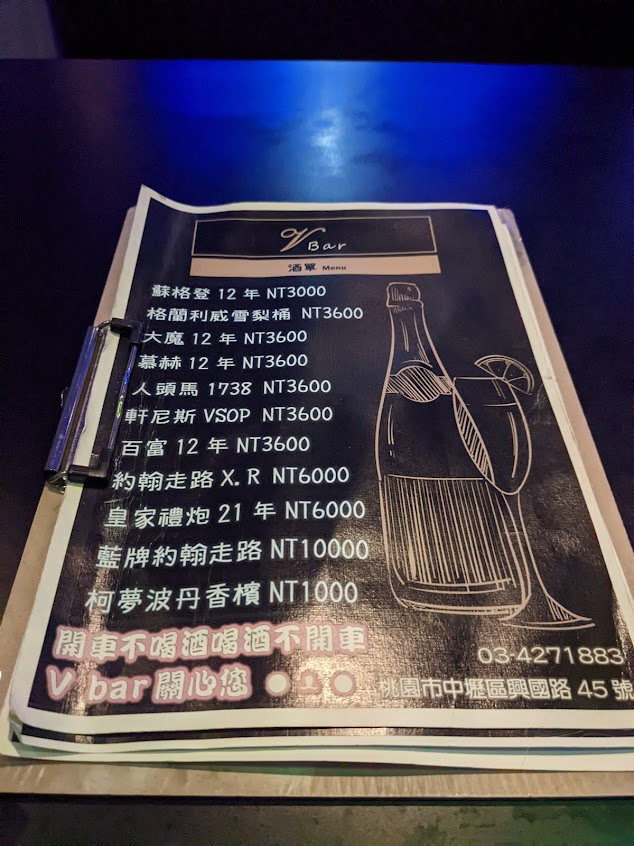 V Bar
酒單 Menu
蘇格登 12 年 NT3000
格蘭利威雪梨桶 NT3600
大魔 12 年 NT3600
慕赫 12 年 NT3600
人頭馬 1738 NT3600
軒尼斯 VSOP NT3600
百富 12 年 NT3600
約翰走路 X.R NT6000
皇家禮炮 21 年 NT6000
藍牌約翰走路 NT10000
柯夢波丹香檳 NT1000
開車不喝酒喝酒不開車
V bar 關心您
03-4271883
桃園市中壢區興國路 45 號